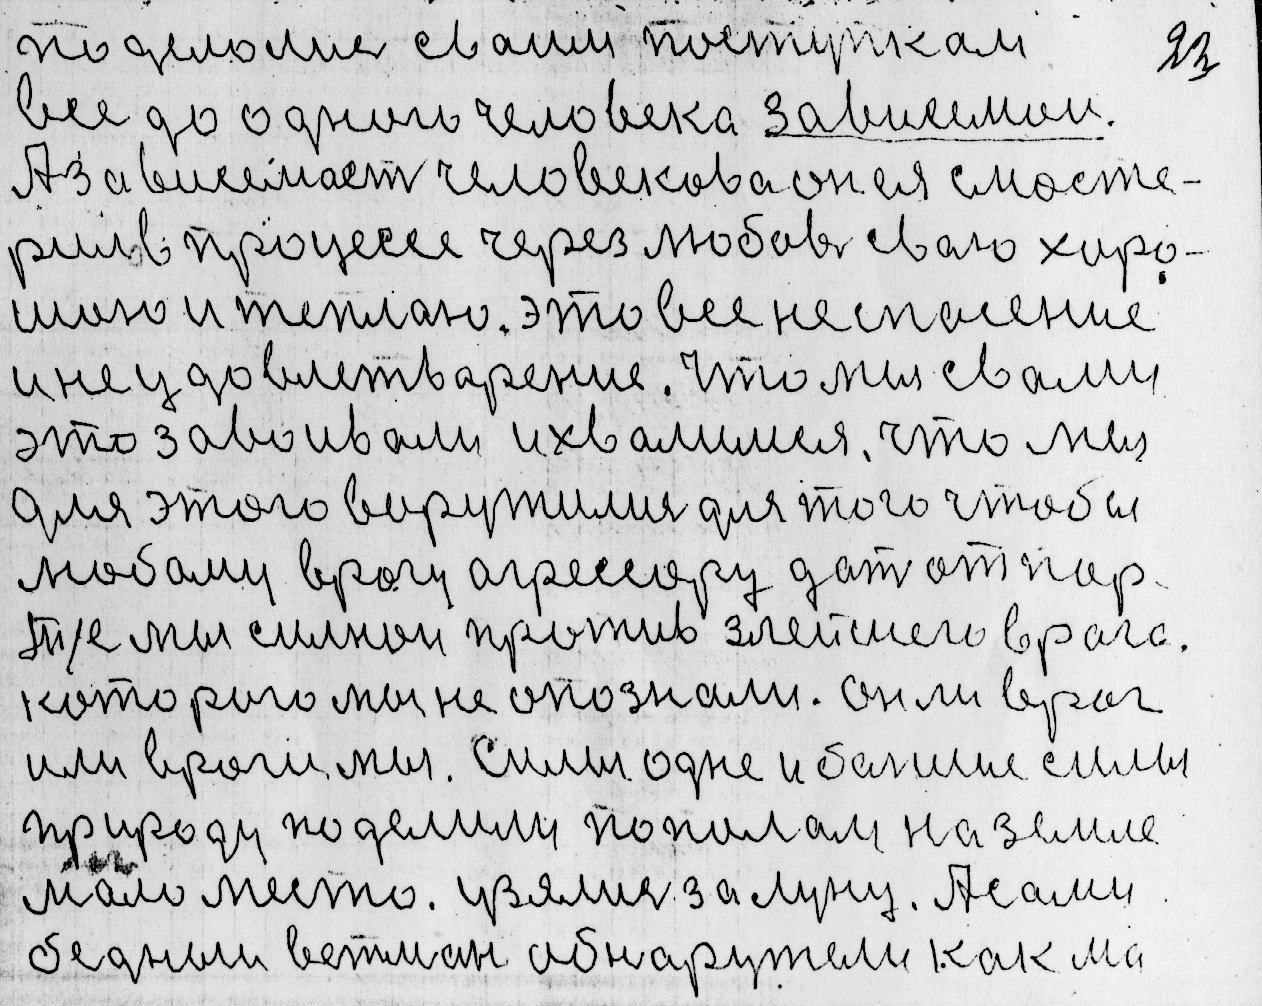 поделомия сваими поступкам 23
все до одного человека зависемои.
А зависемаст человекова онея смосте-
рил в процессе через любов сваю хоро-
шаю и теплаю. это все не спасение
и не удовлетварение. Что мы свами
это завоивали и хвалимся, что мы
для этого воружилис для того чтобы
любаму врагу агрессору дат отпор
Тже мы силнои против злейшего врага.
которого мы не опознали. Он ли враг
или враги мы. Силы одне и балшие силы
природу поделили пополам на земле
мало место. узялис за луну. А сами
бедныи ветман обнаружели как ма